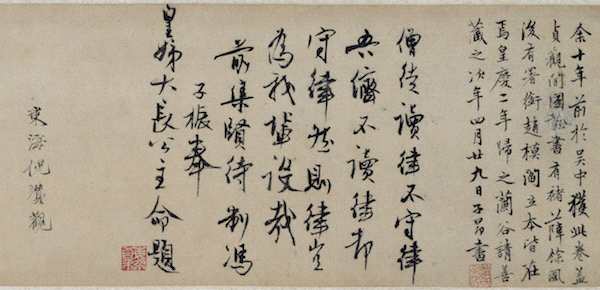 余十年前於吳中獲此卷蓋
貞觀間國詮書有褚薛餘風
後有署銜趙模閻立本皆在
焉皇慶二年歸之蘭谷請善
藏之次年四月廿九日子昂書
僧徒讀律不守律
吾儕不讀律却
守律然則律豈
為我輩設哉
前集賢待制馮
子振奉
皇姊大長公主命題
東海倪瓚觀